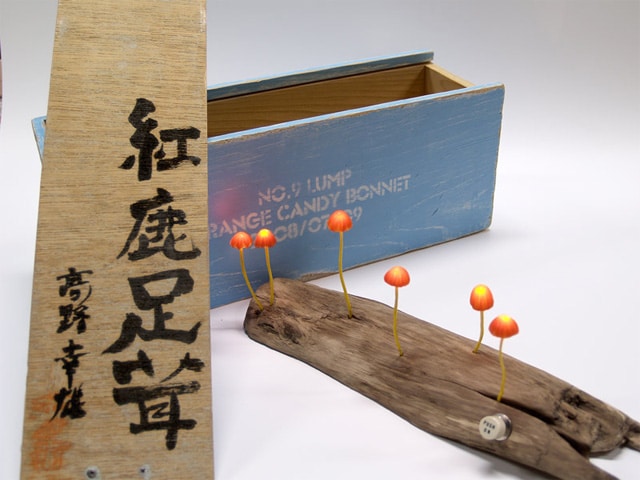 紅鹿足茸
高野幸雄
NO.9 LUMP
RANGE CANDY BONNET
08/07 09
PUSH
ON